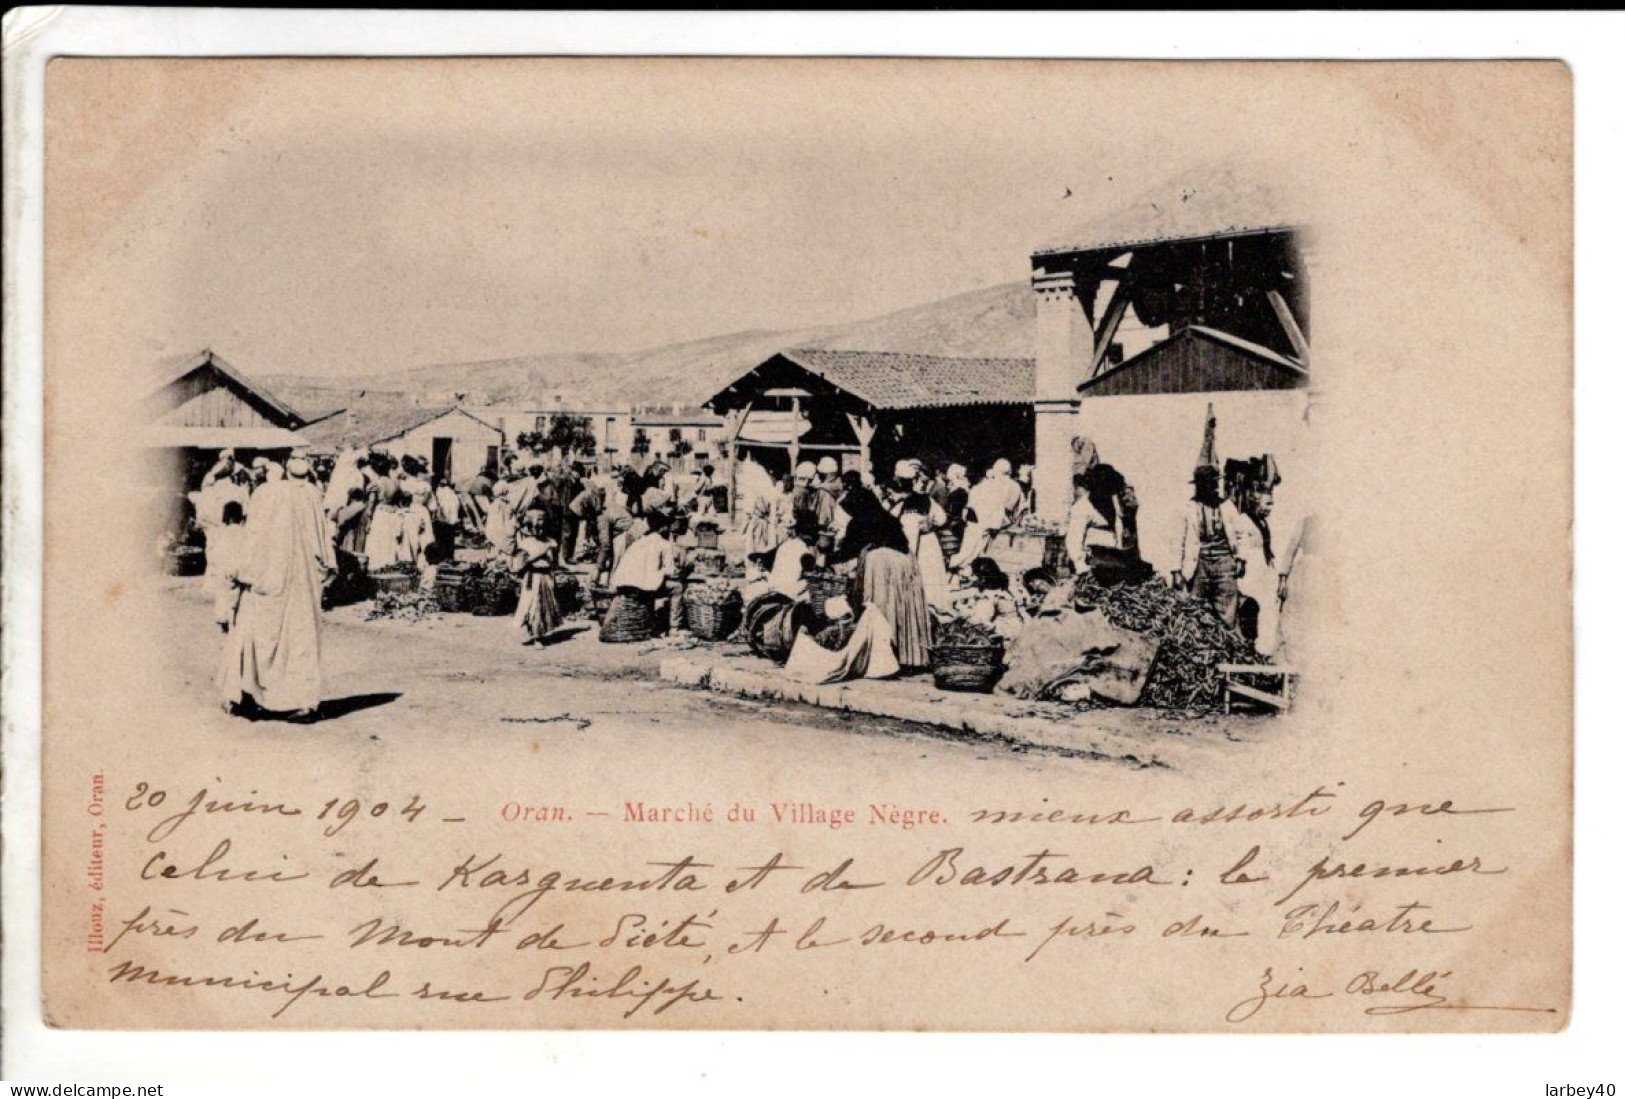 20 juin 1904 – Oran. — Marché du Village Nègre. mieux assorti que
celui de Karguenta et de Bastrana : le premier
près du Mont de Piété, et le second près du Théatre
Municipal rue Philippe. Zia Bellé
Illouz, éditeur, Oran.
www.delcampe.net
larbey40